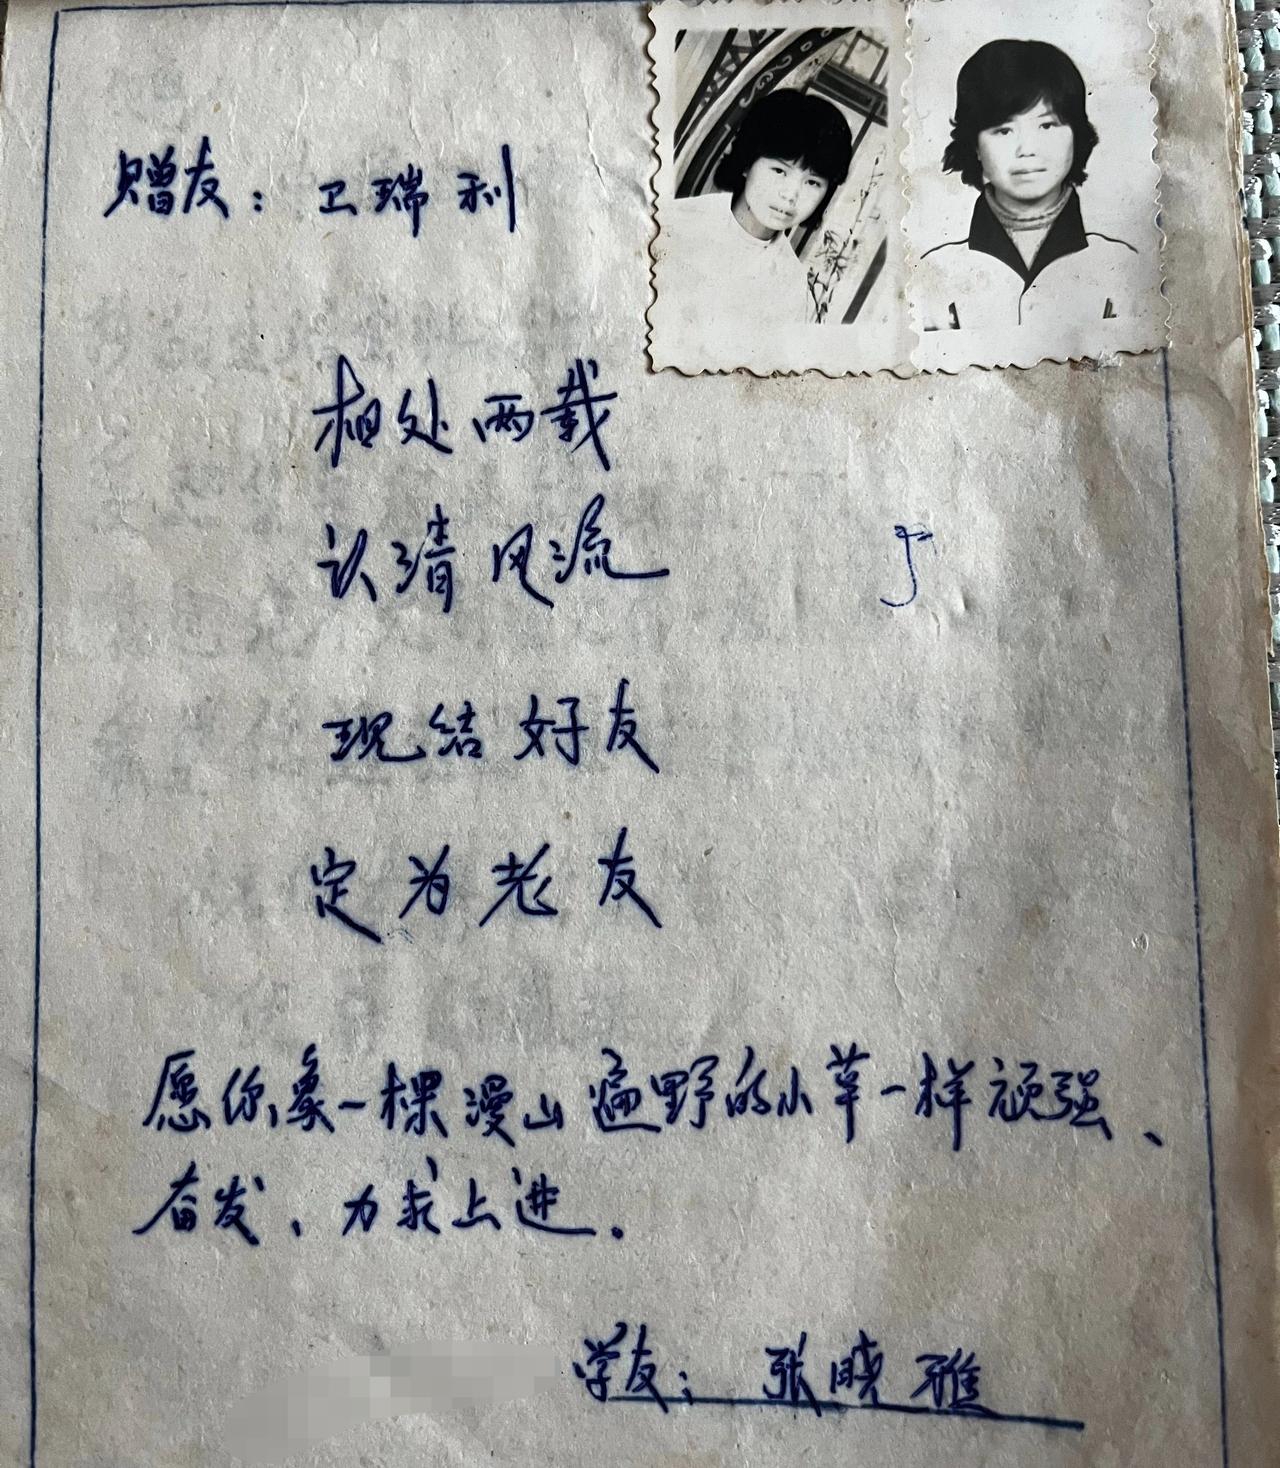 赠友：卫瑞利
相处两载
认清风流
现结好友
定为老友
愿你象一棵漫山遍野的小草一样顽强、
奋发、力求上进。
学友：张晓雅